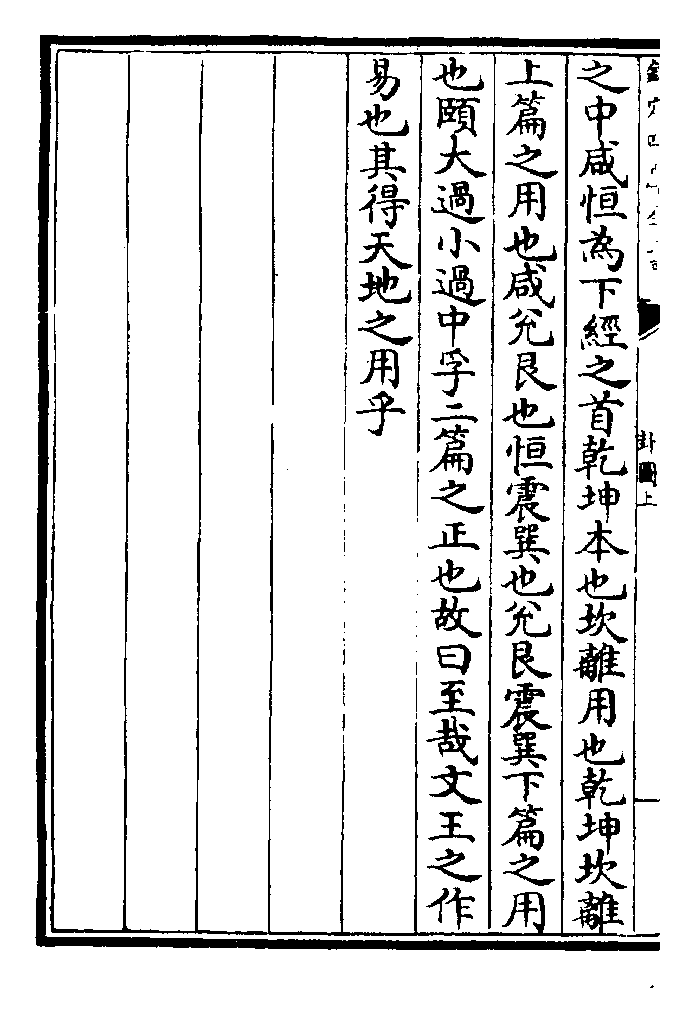 之中咸恒為下經之首乾坤本也坎離用也乾坤坎離
上篇之用也咸兊艮也恒震巽也兊艮震巽下篇之用
也頤大過小過中孚二篇之正也故曰至哉文王之作
易也其得天地之用乎
卦圖上